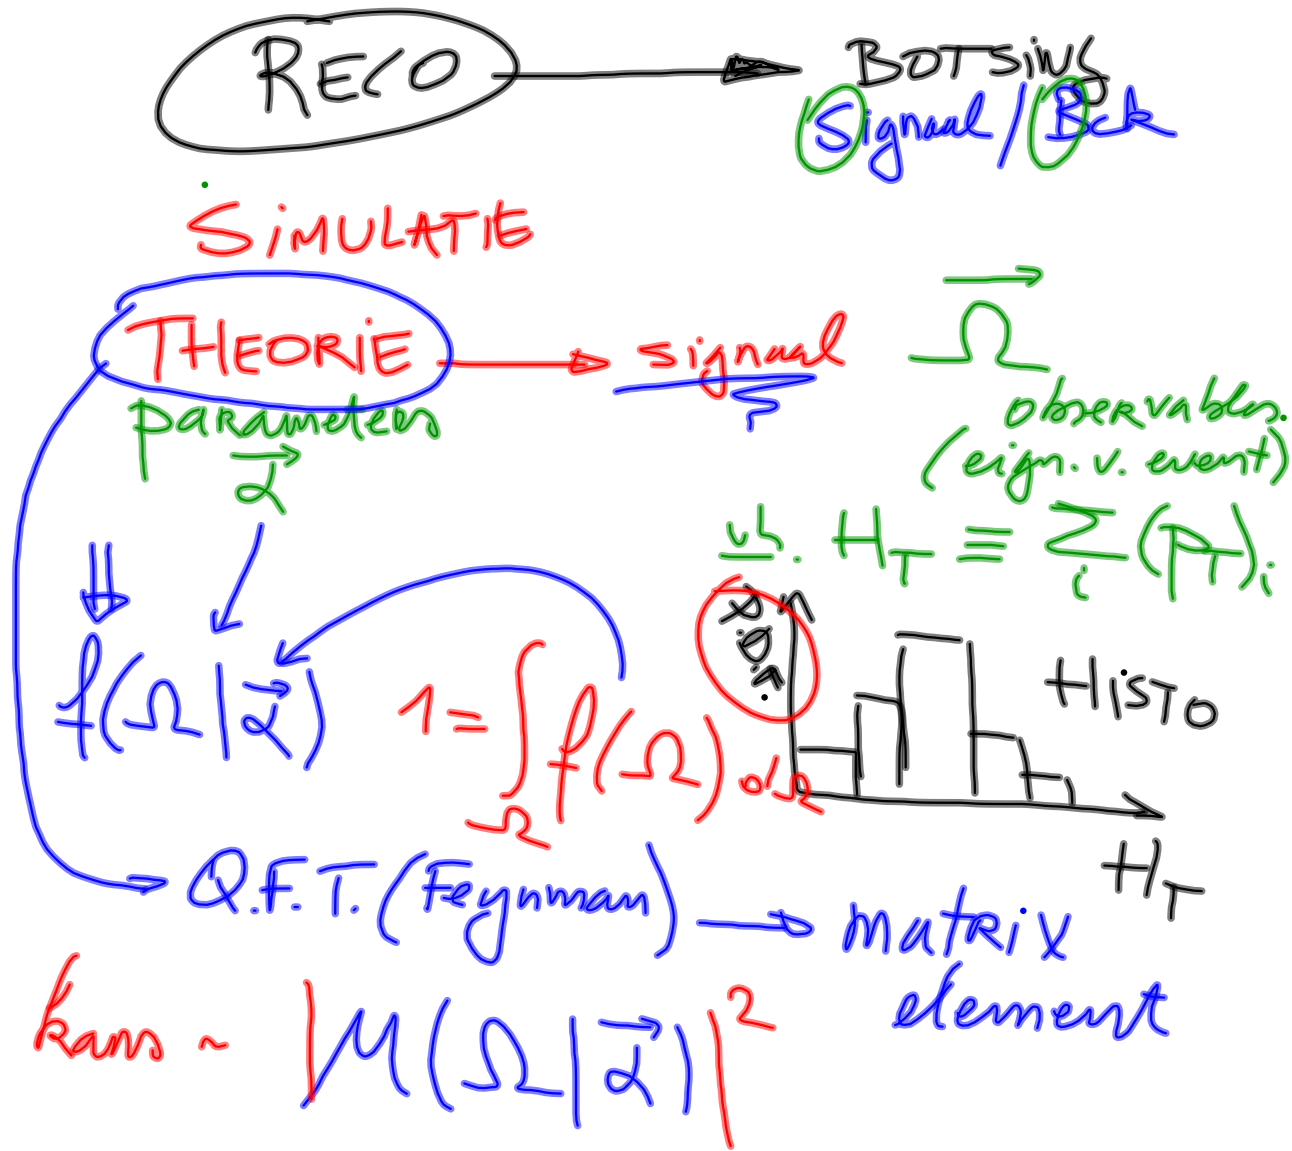 RECO → BOTSING
Signaal / Bck
SIMULATIE
THEORIE → signaal
parameters
α⃗
Ω⃗
observables.
(eign. v. event)
vb. H_T ≡ Σ_i (p_T)_i
f(Ω|α⃗)
1 = ∫_Ω f(Ω) dΩ
HISTO
H_T
Q.F.T. (Feynman) → matrix
element
kans ~ |M(Ω|α⃗)|²